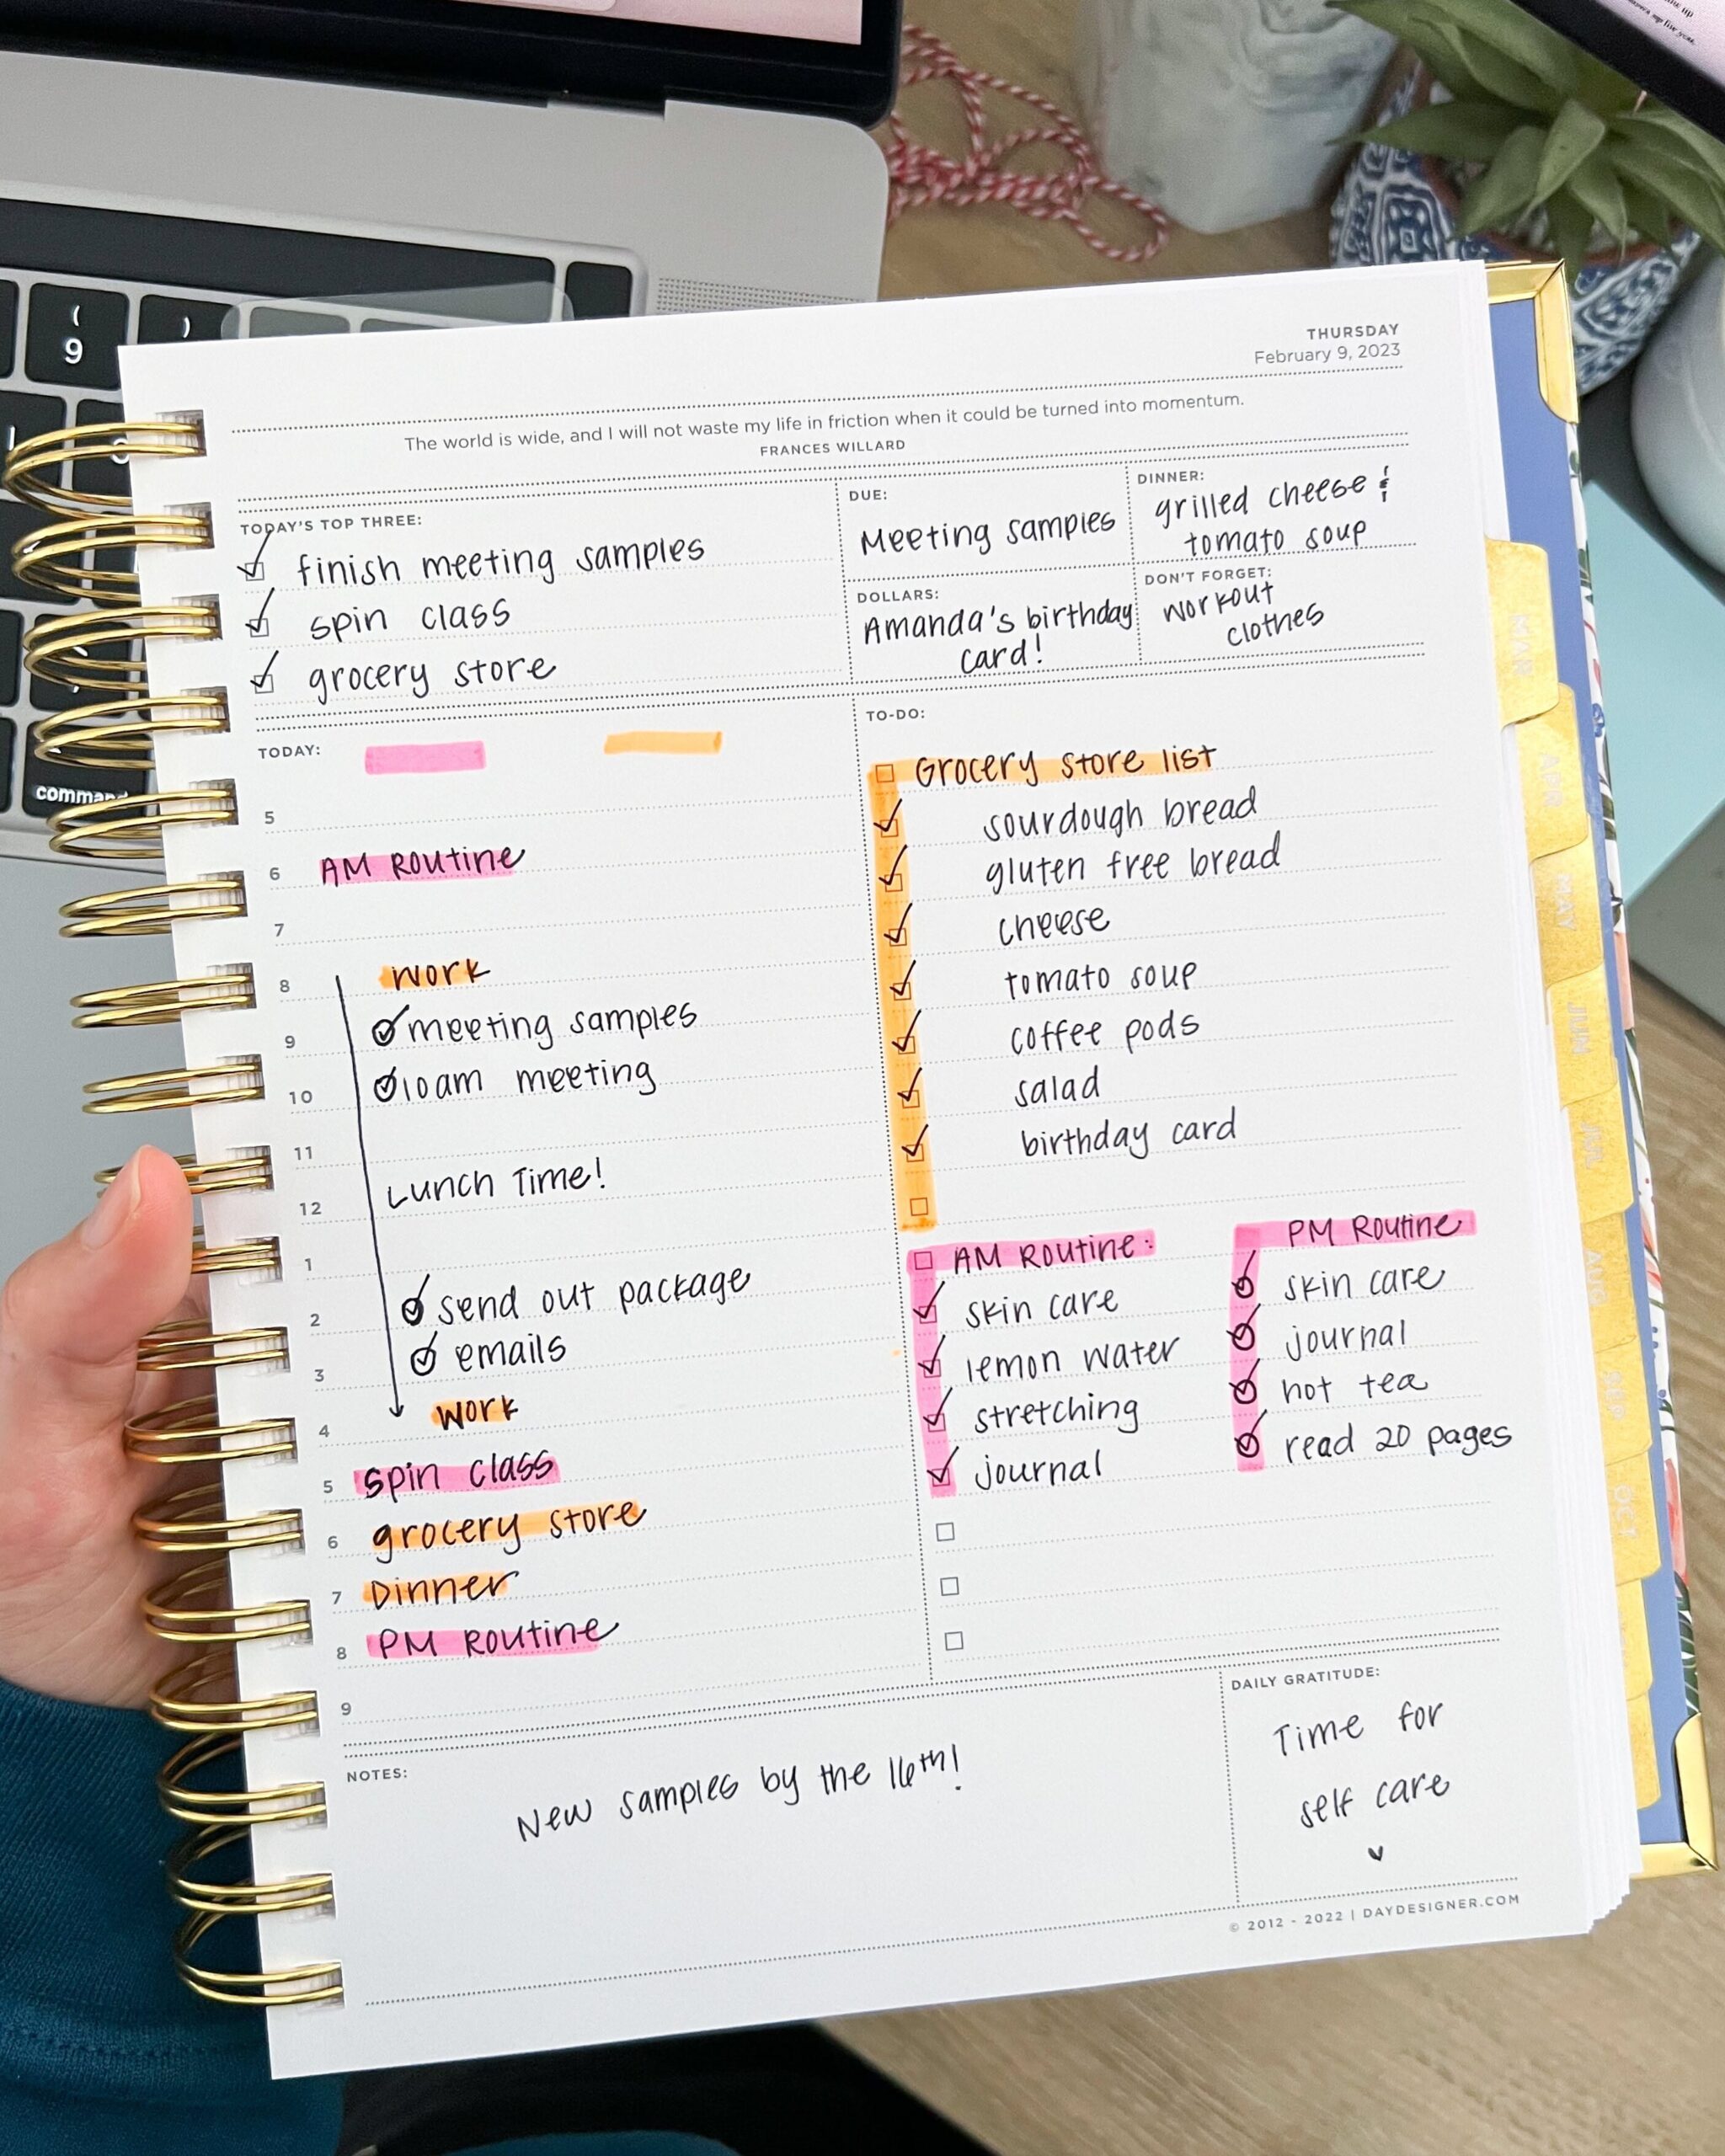 ( 9
)
command
THURSDAY
February 9, 2023
The world is wide, and I will not waste my life in friction when it could be turned into momentum.
FRANCES WILLARD
TODAY'S TOP THREE:
finish meeting samples
spin class
grocery store
DUE:
Meeting samples
DINNER:
grilled cheese &
tomato soup
DOLLARS:
Amanda's birthday
card!
DON'T FORGET:
workout
clothes
TODAY:
5
6 AM Routine
7
8 work
9 meeting samples
10 10am meeting
11
12 Lunch Time!
1
2 send out package
3 emails
4 work
5 spin class
6 grocery store
7 Dinner
8 PM Routine
9
TO-DO:
Grocery store list
sourdough bread
gluten free bread
cheese
tomato soup
coffee pods
salad
birthday card
AM Routine:
skin care
lemon water
stretching
journal
PM Routine
skin care
journal
hot tea
read 20 pages
NOTES:
New samples by the 16th!
DAILY GRATITUDE:
Time for
self care
© 2012 - 2022 | DAYDESIGNER.COM
MAR
APR
MAY
JUN
JUL
AUG
SEP
OCT